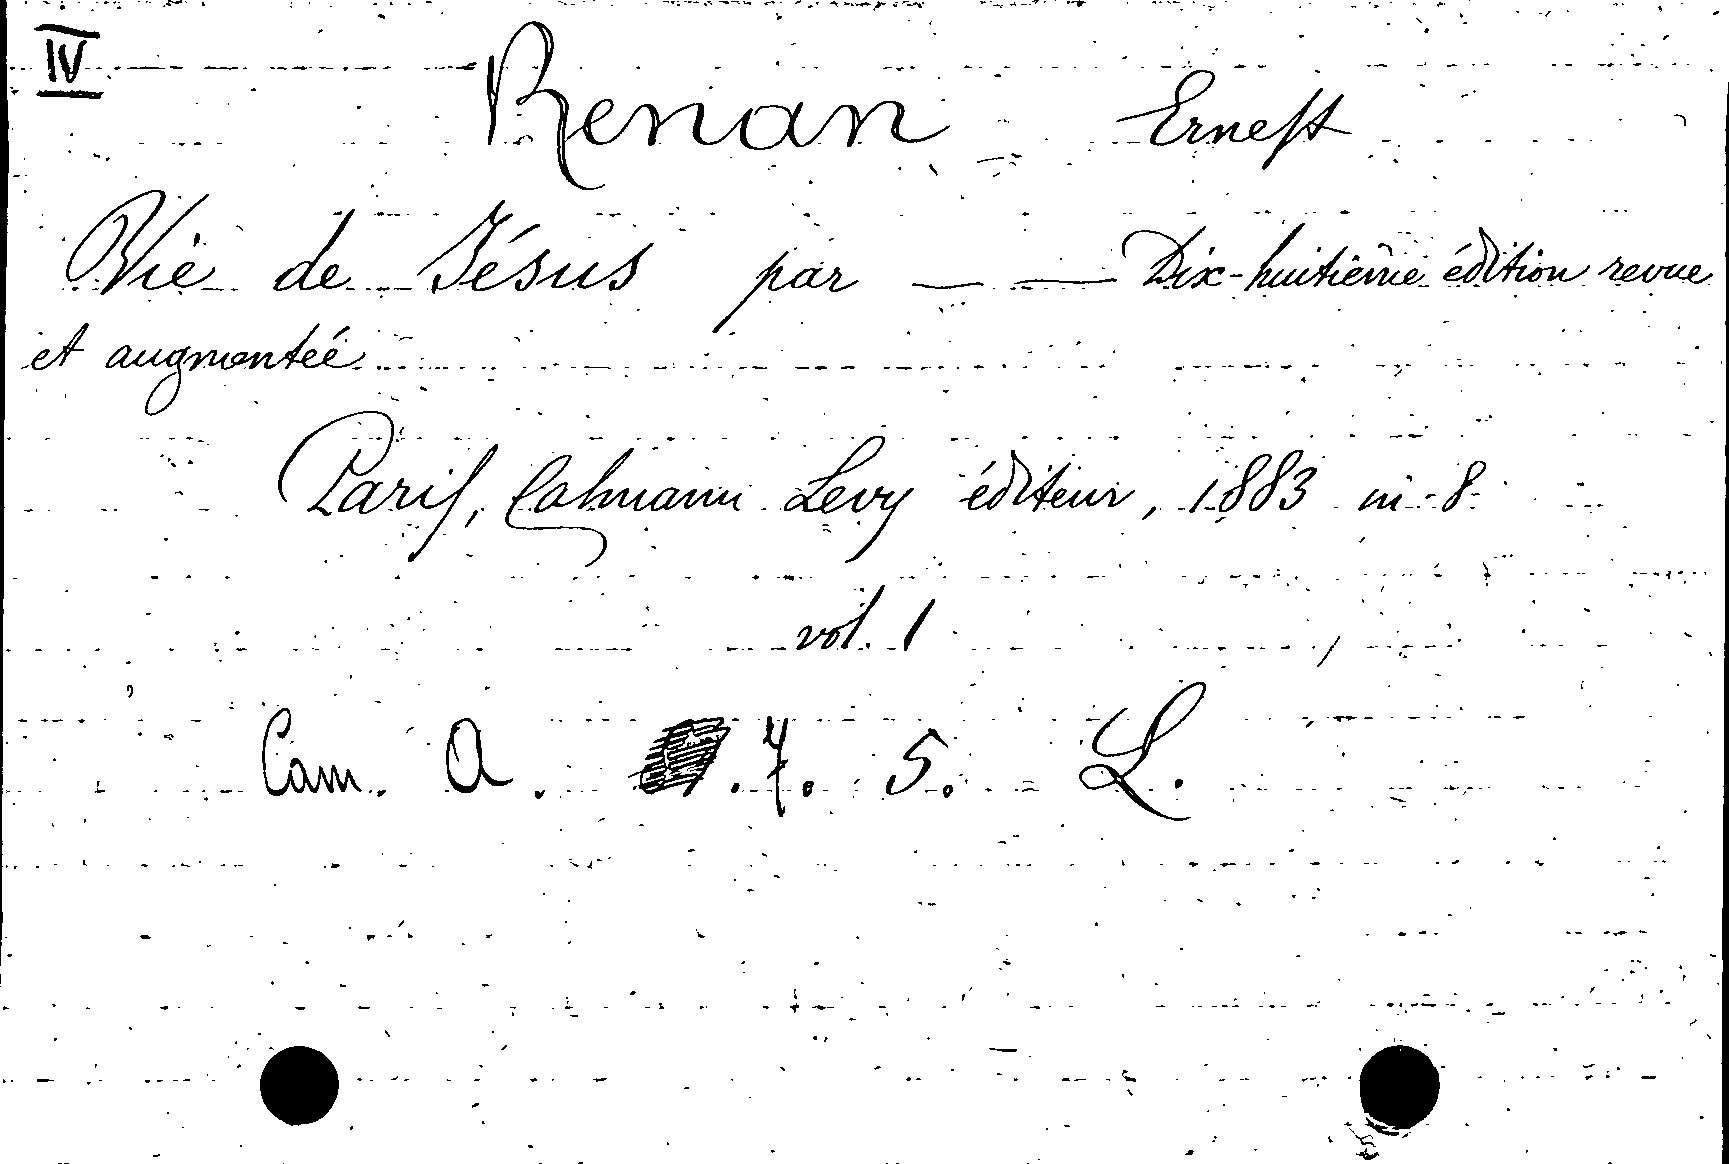 IV
Renan Ernest
Vie de Jésus par — — Dix-huitième édition revue
et augmentée
Paris, Calmann Levy éditeur, 1883 in-8
vol. 1
Cam. A. .7. 5. L.